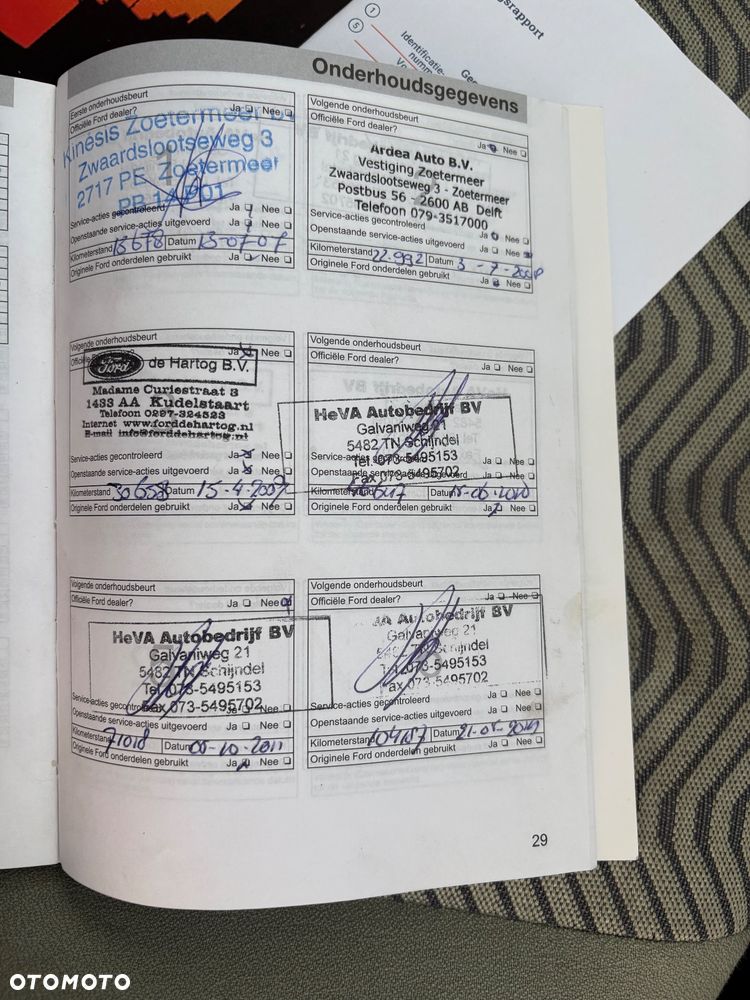 srapport
1
5
Identificatie-
numm
Ge
Vo
Onderhoudsgegevens
Eerste onderhoudsbeurt
Officiële Ford dealer? Ja Nee
Kinesis Zoetermeer B
Zwaardslootseweg 3
2717 PE Zoetermeer
Service-acties gecontroleerd Ja Nee
Openstaande service-acties uitgevoerd Ja Nee
Kilometerstand 13678 Datum 13-07 07
Originele Ford onderdelen gebruikt Ja Nee
Volgende onderhoudsbeurt
Officiële Ford dealer?
Ja Nee
Ardea Auto B.V.
Vestiging Zoetermeer
Zwaardslootseweg 3 - Zoetermeer
Postbus 56 - 2600 AB Delft
Telefoon 079-3517000
Service-acties gecontroleerd Ja Nee
Openstaande service-acties uitgevoerd Ja Nee
Kilometerstand 22.992 Datum 3 - 7 -
Originele Ford onderdelen gebruikt Ja Nee
Volgende onderhoudsbeurt
Ja Nee
Ford de Hartog B.V.
Madame Curiestraat 3
1433 AA Kudelstaart
Telefoon 0297-324523
Internet www.forddehartog.nl
E-mail info@forddehartog.nl
Service-acties gecontroleerd Ja Nee
Openstaande service-acties uitgevoerd Ja Nee
Kilometerstand 30658 Datum 15-4-2009
Originele Ford onderdelen gebruikt Ja Nee
Volgende onderhoudsbeurt
Officiële Ford dealer?
Ja Nee
HeVA Autobedrijf BV
Galvaniweg 21
5482 TN Schijndel
Tel. 073-5495153
Fax 073-5495702
Service-acties Ja Nee
Openstaande service Ja Nee
Kilometerstand Datum
Originele Ford onderdelen gebruikt Ja Nee
Volgende onderhoudsbeurt
Officiële Ford dealer? Ja Nee
HeVA Autobedrijf BV
Galvaniweg 21
5482 TN Schijndel
Tel. 073-5495153
Fax 073-5495702
Service-acties Ja Nee
Openstaande service-acties uitgevoerd Ja Nee
Kilometerstand 71018 Datum -10-2011
Originele Ford onderdelen gebruikt Ja Nee
Volgende onderhoudsbeurt
Officiële Ford dealer? Ja Nee
Autobedrijf BV
Galvaniweg 21
Schijndel
Tel. 073-5495153
Fax 073-5495702
Service-acties gecontroleerd Ja Nee
Openstaande service-acties uitgevoerd Ja Nee
Kilometerstand 104157 Datum
Originele Ford onderdelen gebruikt Ja Nee
29
OTOMOTO